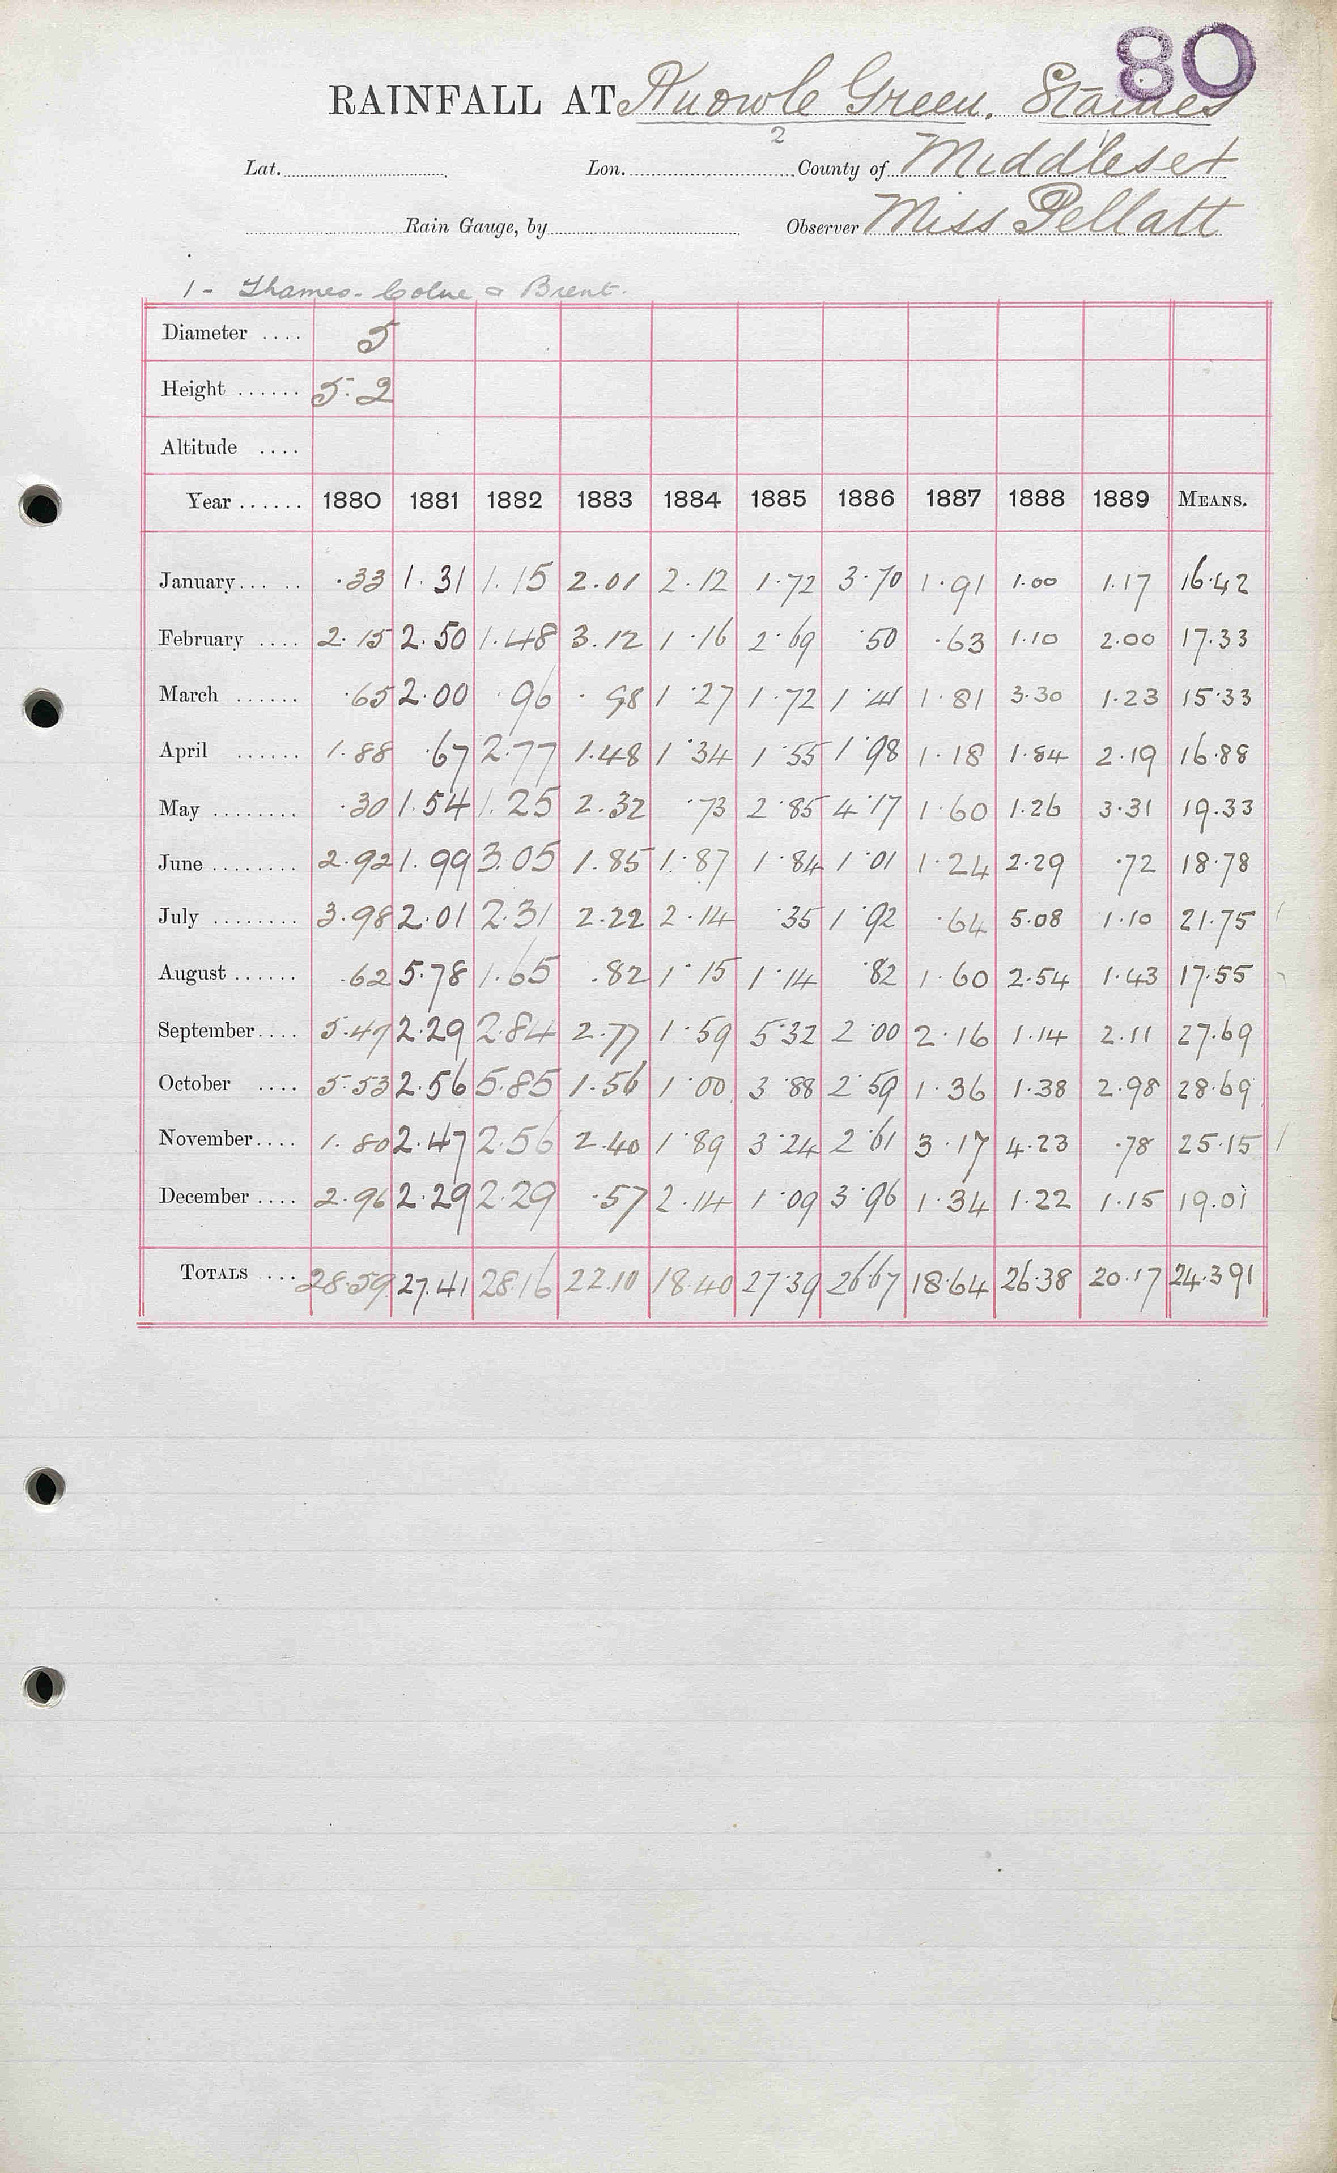 80
RAINFALL AT Knowle Green, Staines
2
Lat. Lon. County of Middlesex
Rain Gauge, by Observer Miss Pellatt
1 - Thames - Colne & Brent.
Diameter .... 5
Height ...... 5.2
Altitude ....
Year ...... 1880 1881 1882 1883 1884 1885 1886 1887 1888 1889 MEANS.
January... .. .33 1.31 1.15 2.01 2.12 1.72 3.70 1.91 1.00 1.17 16.42
February .... 2.15 2.50 1.48 3.12 1.16 2.69 .50 .63 1.10 2.00 17.33
March ...... .65 2.00 .96 .98 1.27 1.72 1.41 1.81 3.30 1.23 15.33
April ...... 1.88 .67 2.77 1.48 1.34 1.55 1.98 1.18 1.84 2.19 16.88
May ........ .30 1.54 1.25 2.32 .73 2.85 4.17 1.60 1.26 3.31 19.33
June ........ 2.92 1.99 3.05 1.85 1.87 1.84 1.01 1.24 2.29 .72 18.78
July ........ 3.98 2.01 2.31 2.22 2.14 .35 1.92 .64 5.08 1.10 21.75
August ...... .62 5.78 1.65 .82 1.15 1.14 .82 1.60 2.54 1.43 17.55
September.... 5.47 2.29 2.84 2.77 1.59 5.32 2.00 2.16 1.14 2.11 27.69
October .... 5.53 2.56 5.85 1.56 1.00 3.88 2.59 1.36 1.38 2.98 28.69
November.... 1.80 2.47 2.56 2.40 1.89 3.24 2.61 3.17 4.23 .78 25.15
December .... 2.96 2.29 2.29 .57 2.14 1.09 3.96 1.34 1.22 1.15 19.01
TOTALS ... 28.59 27.41 28.16 22.10 18.40 27.39 26.67 18.64 26.38 20.17 24.391